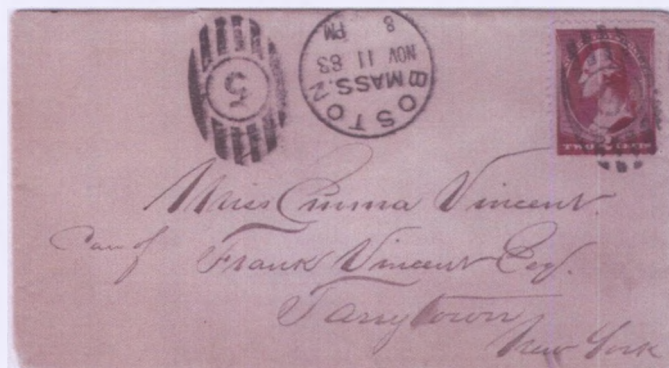 BOSTON
MASS.
NOV 11 83
8
PM
5
TWO
Miss Emma Vincent.
Care of Frank Vincent Esq.
Tarrytown
New York